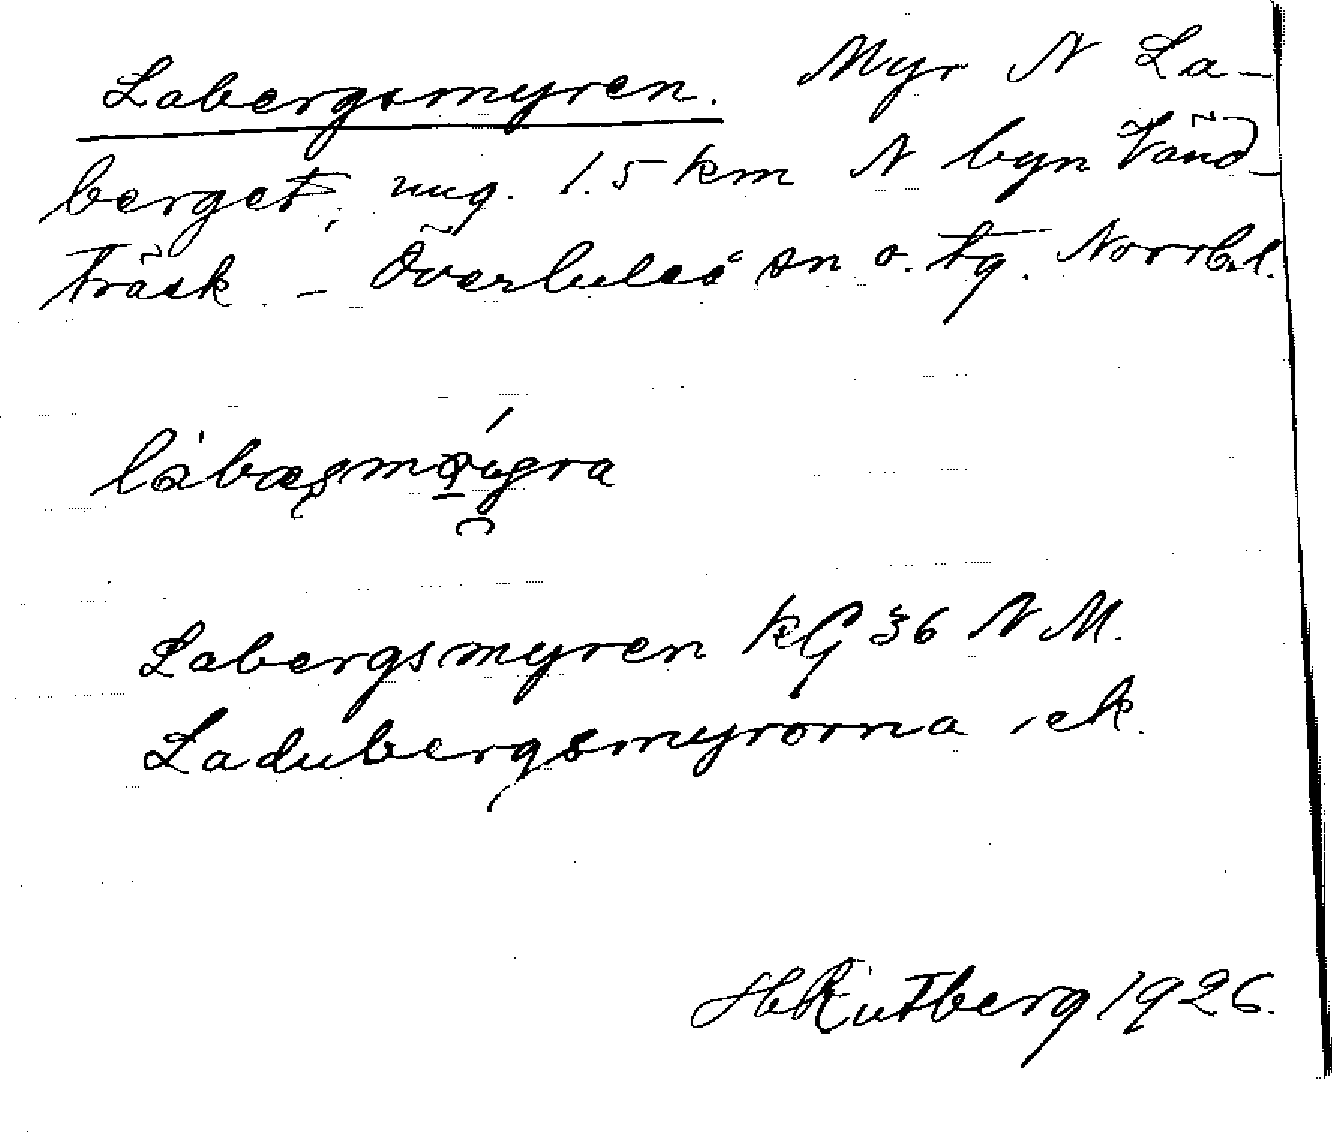 Labergsmyren. Myr N La-
berget, ung. 1.5 km N byn Vänd-
träsk. - Överluleå sn o. tg. Norrb. l.
Labergsmyren KG 36 N M.
Ladubergsmyrorna, ek.
H Rutberg 1926.